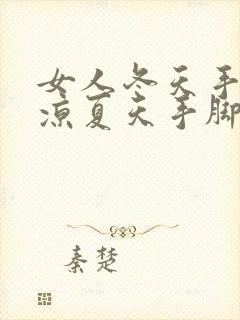 女人冬天手
凉夏天手脚
秦楚